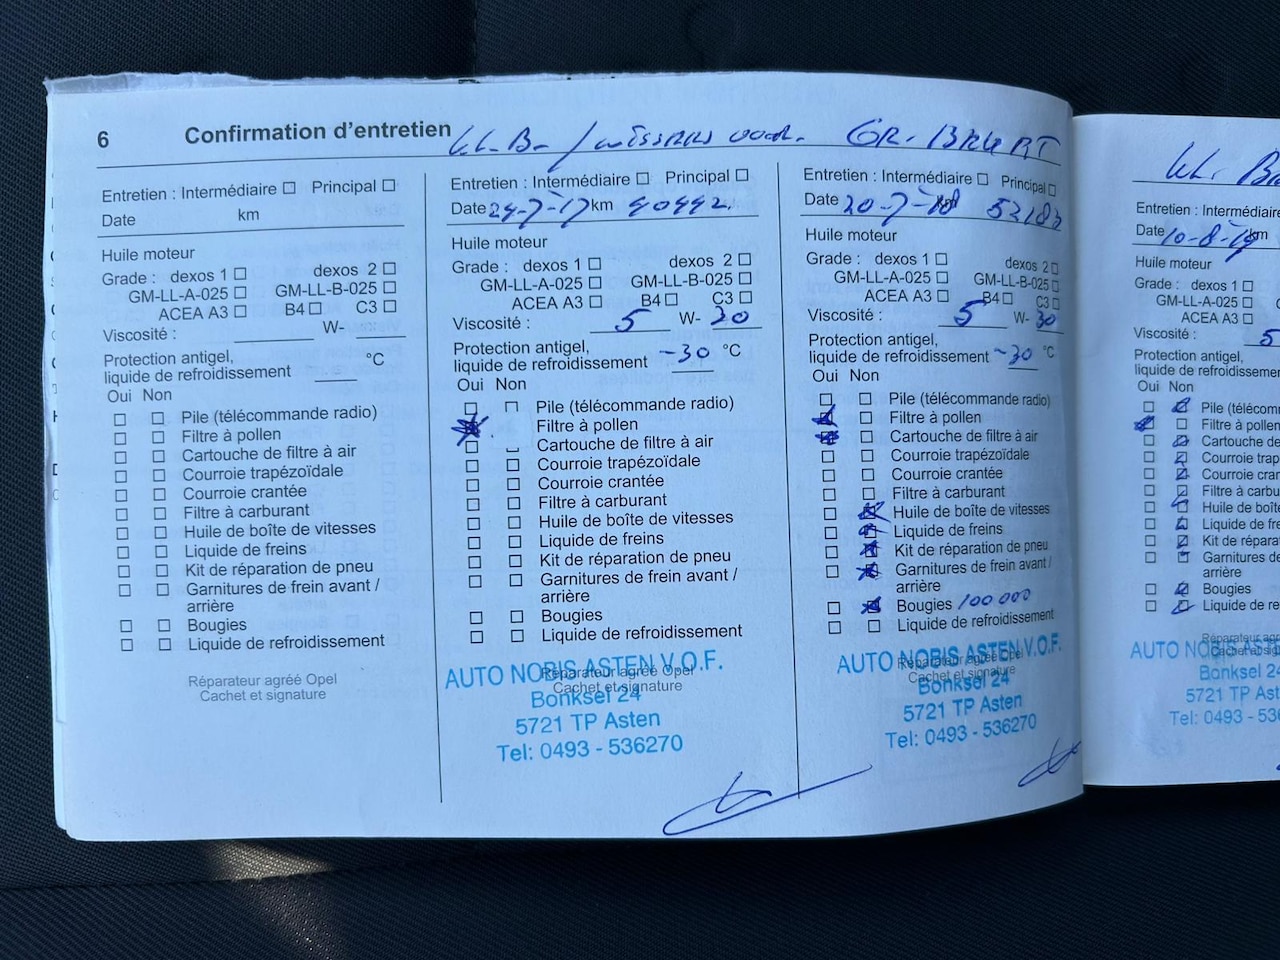 6 Confirmation d'entretien GR. BEURT
Entretien : Intermédiaire Principal
Date km
Huile moteur
Grade : dexos 1 dexos 2
GM-LL-A-025 GM-LL-B-025
ACEA A3 B4 C3
Viscosité : W-
Protection antigel, °C
liquide de refroidissement
Oui Non
Pile (télécommande radio)
Filtre à pollen
Cartouche de filtre à air
Courroie trapézoïdale
Courroie crantée
Filtre à carburant
Huile de boîte de vitesses
Liquide de freins
Kit de réparation de pneu
Garnitures de frein avant /
arrière
Bougies
Liquide de refroidissement
Réparateur agréé Opel
Cachet et signature
Entretien : Intermédiaire Principal
Date 24-7-17 km 40442.
Huile moteur
Grade : dexos 1 dexos 2
GM-LL-A-025 GM-LL-B-025
ACEA A3 B4 C3
Viscosité : 5 W- 30
Protection antigel,
liquide de refroidissement -30 °C
Oui Non
Pile (télécommande radio)
Filtre à pollen
Cartouche de filtre à air
Courroie trapézoïdale
Courroie crantée
Filtre à carburant
Huile de boîte de vitesses
Liquide de freins
Kit de réparation de pneu
Garnitures de frein avant /
arrière
Bougies
Liquide de refroidissement
Réparateur agréé Opel
Cachet et signature
AUTO NOBIS ASTEN V.O.F.
Bonksel 24
5721 TP Asten
Tel: 0493 - 536270
Entretien : Intermédiaire Principal
Date 20-7-18
Huile moteur
Grade : dexos 1 dexos 2
GM-LL-A-025 GM-LL-B-025
ACEA A3 B4 C3
Viscosité : 5 W- 30
Protection antigel,
liquide de refroidissement -30 °C
Oui Non
Pile (télécommande radio)
Filtre à pollen
Cartouche de filtre à air
Courroie trapézoïdale
Courroie crantée
Filtre à carburant
Huile de boîte de vitesses
Liquide de freins
Kit de réparation de pneu
Garnitures de frein avant /
arrière
Bougies 100 000
Liquide de refroidissement
Réparateur agréé Opel
Cachet et signature
AUTO NOBIS ASTEN V.O.F.
Bonksel 24
5721 TP Asten
Tel: 0493 - 536270
Entretien : Intermédiaire
Date 10-8-19 km
Huile moteur
Grade : dexos 1
GM-LL-A-025
ACEA A3
Viscosité : 5
Protection antigel,
liquide de refroidissement
Oui Non
Pile (télécom
Filtre à pollen
Cartouche de
Courroie trap
Courroie cran
Filtre à carbu
Huile de boît
Liquide de fre
Kit de répara
Garnitures de
arrière
Bougies
Liquide de re
Réparateur agr
Cachet et si
AUTO NOBIS ASTE
Bonksel 24
5721 TP
Tel: 0493 - 53